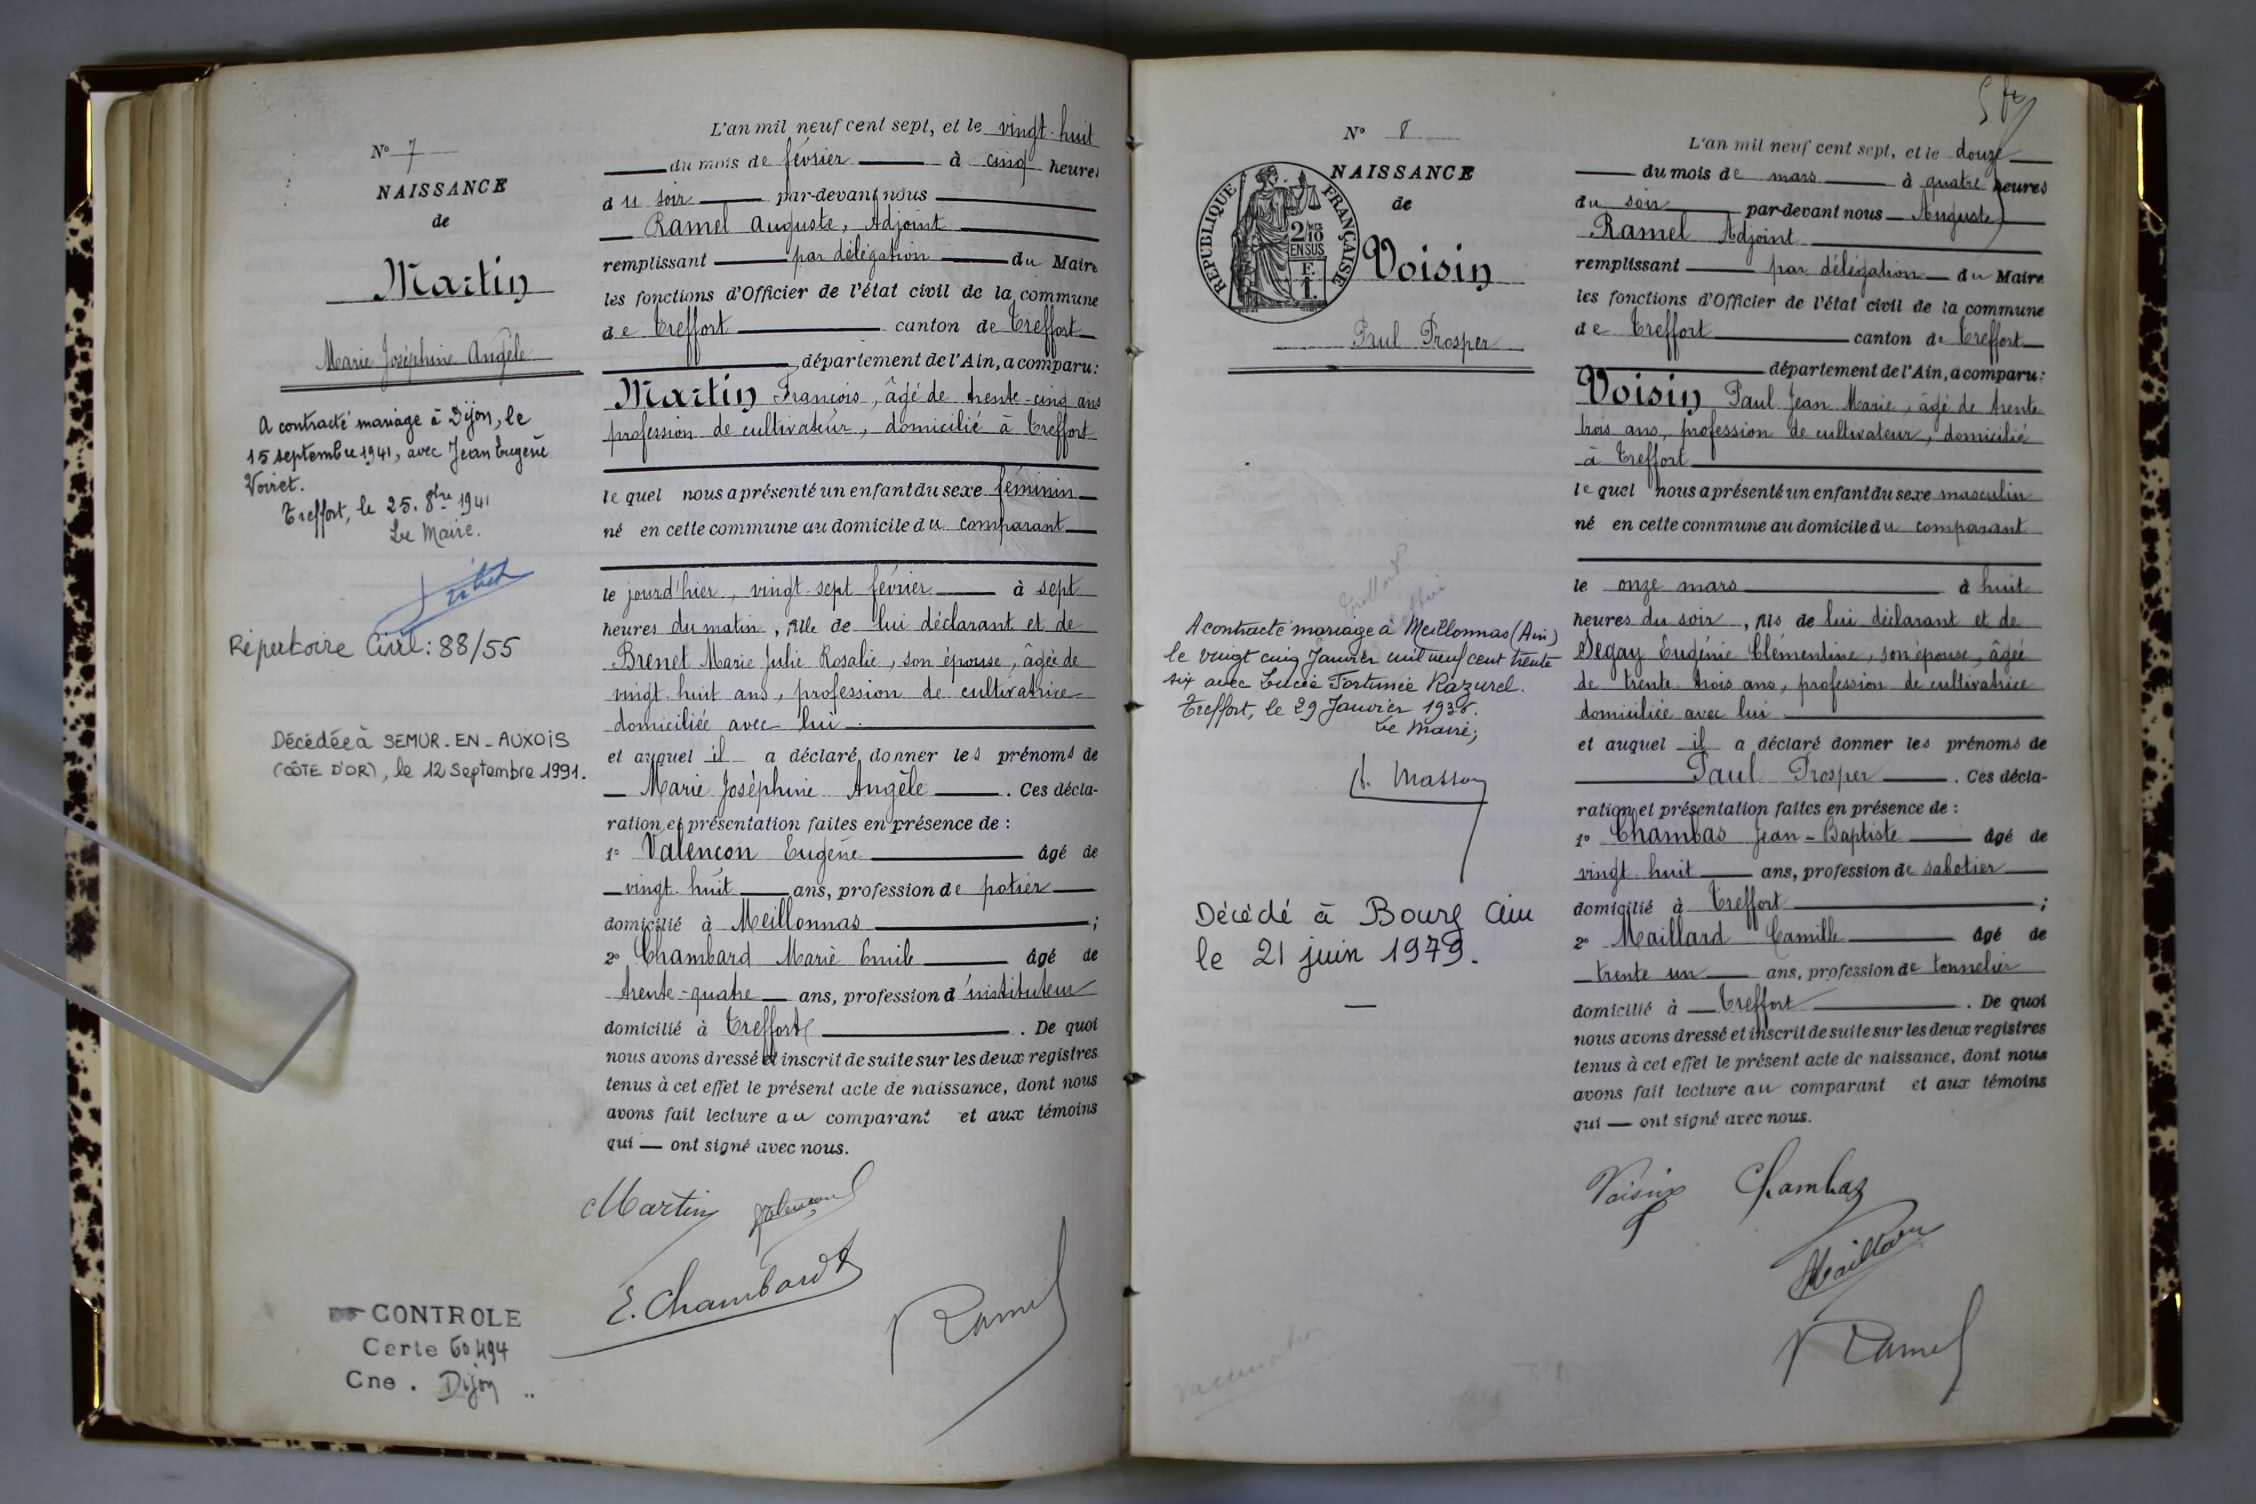 N° 7
NAISSANCE
de
Martin
Marie Joséphine Angèle
A contracté mariage à Dijon, le
15 septembre 1941, avec Jean Eugène
Voiret.
Treffort, le 25. 8bre 1941
Le Maire.
Répertoire Civil : 88/55
Décédée à SEMUR-EN-AUXOIS
(CÔTE D'OR), le 12 Septembre 1991.
CONTROLE
Carte 60494
Cne. Dijon
L'an mil neuf cent sept, et le vingt-huit
du mois de février à cinq heures
du soir par-devant nous
Ramel Auguste, Adjoint
remplissant par délégation du Maire
les fonctions d'Officier de l'état civil de la commune
de Treffort canton de Treffort
, département de l'Ain, a comparu :
Martin François, âgé de trente-cinq ans
profession de cultivateur, domicilié à Treffort
lequel nous a présenté un enfant du sexe féminin
né en cette commune au domicile du comparant
le jourd'hier, vingt-sept février à sept
heures du matin, fille de lui déclarant et de
Brenet Marie Julie Rosalie, son épouse, âgée de
vingt-huit ans, profession de cultivatrice
domiciliée avec lui.
et auquel il a déclaré donner les prénoms de
Marie Joséphine Angèle . Ces décla-
ration et présentation faites en présence de :
1° Valençon Eugène âgé de
vingt-huit ans, profession de potier
domicilié à Meillonnas ;
2° Chambard Marie Emile âgé de
trente-quatre ans, profession d'instituteur
domicilié à Treffort . De quoi
nous avons dressé et inscrit de suite sur les deux registres
tenus à cet effet le présent acte de naissance, dont nous
avons fait lecture au comparant et aux témoins
qui — ont signé avec nous.
Martin Valençon
E. Chambard
Ramel
N° 8
NAISSANCE
de
RÉPUBLIQUE FRANÇAISE
2/10
EN SUS
Voisin
Paul Prosper
A contracté mariage à Meillonnas (Ain)
le vingt cinq Janvier mil neuf cent trente
six avec Lucie Fortunée Razurel.
Treffort, le 29 Janvier 1936.
Le Maire,
Décédé à Bourg Ain
le 21 juin 1979.
L'an mil neuf cent sept, et le douze
du mois de mars à quatre heures
du soir par-devant nous Auguste
Ramel Adjoint
remplissant par délégation du Maire
les fonctions d'Officier de l'état civil de la commune
de Treffort canton de Treffort
département de l'Ain, a comparu :
Voisin Paul Jean Marie, âgé de trente
trois ans, profession de cultivateur, domicilié
à Treffort
lequel nous a présenté un enfant du sexe masculin
né en cette commune au domicile du comparant
le onze mars à huit
heures du soir, fils de lui déclarant et de
Degay Eugénie Clémentine, son épouse, âgée
de trente trois ans, profession de cultivatrice
domiciliée avec lui
et auquel il a déclaré donner les prénoms de
Paul Prosper . Ces décla-
ration et présentation faites en présence de :
1° Chambas Jean-Baptiste âgé de
vingt-huit ans, profession de sabotier
domicilié à Treffort ;
2° Maillard Camille âgé de
trente un ans, profession de tonnelier
domicilié à Treffort . De quoi
nous avons dressé et inscrit de suite sur les deux registres
tenus à cet effet le présent acte de naissance, dont nous
avons fait lecture au comparant et aux témoins
qui — ont signé avec nous.
Voisin Chambaz
Maillard
Ramel